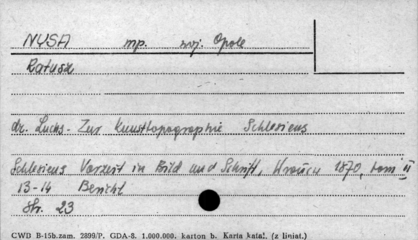 NYSA mp. woj. Opole
Ratusz
dr. Luchs - Zur Kunsttopographie Schlesiens
Schlesiens Vorzeit in Bild und Schrift, 1870, tom II
13-14 Bericht
Str. 23
CWD B-15b.zam. 2899/P. GDA-8. 1.000.000. karton b. Karta katal. (z liniat.)